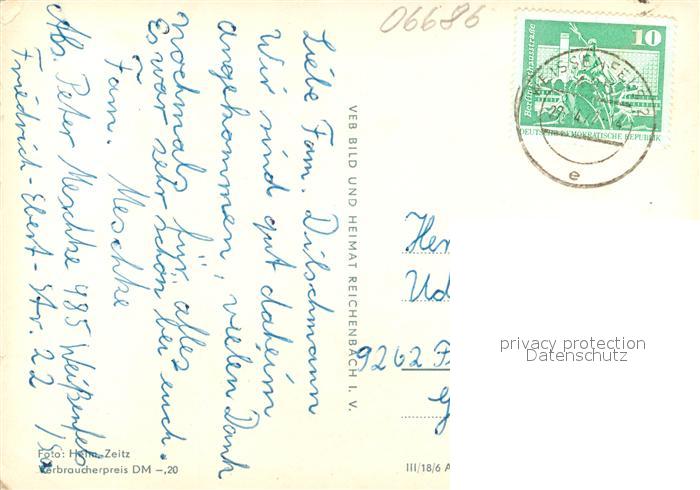 06686
Liebe Fam. Dilschmann
Wir sind gut daheim
angekommen, vielen Dank
nochmals für alles
Es war sehr schön bei euch.
Fam. Meschke
Abs. Peter Meschke 485 Weißenfels
Friedrich-Ebert-Str. 22
VEB BILD UND HEIMAT REICHENBACH I. V.
10
DEUTSCHE DEMOKRATISCHE REPUBLIK
WEISSENFELS
e
Her
Ud
9262
privacy protection
Datenschutz
Foto: Zeitz
Verbraucherpreis DM -,20
III/18/6 A